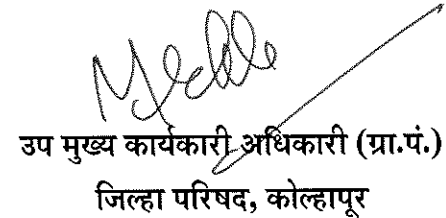 उप मुख्य कार्यकारी अधिकारी (ग्रा.पं.)
जिल्हा परिषद, कोल्हापूर